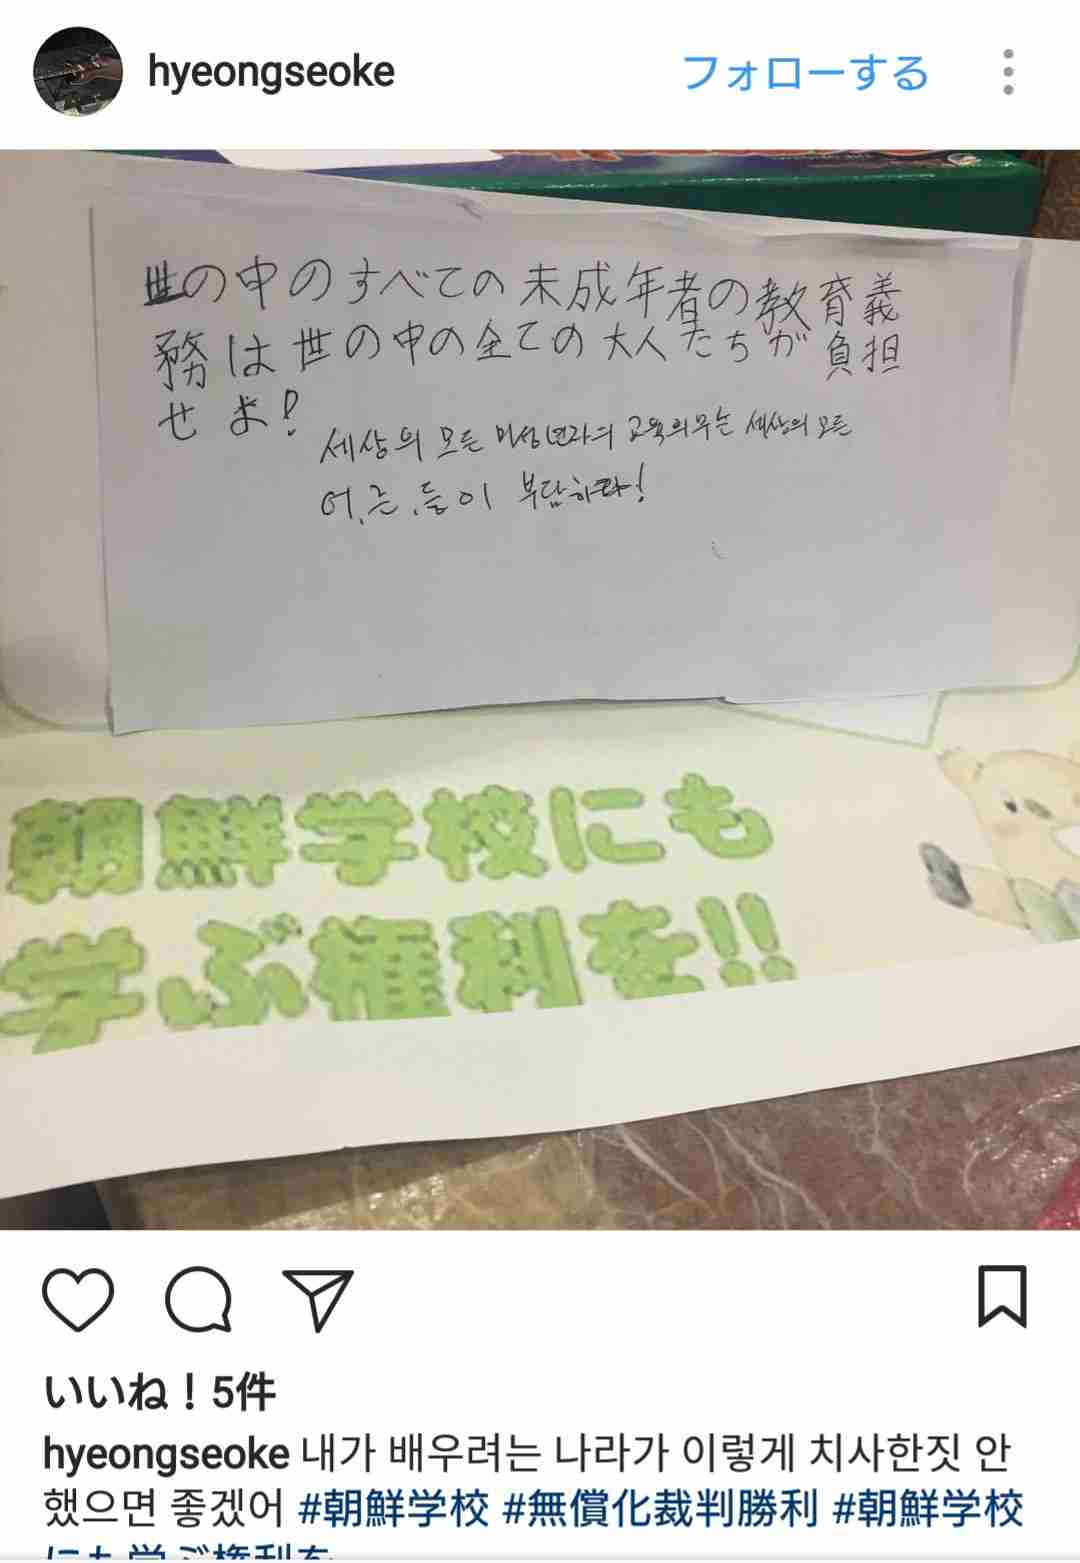 hyeongseoke
フォローする
世の中のすべての未成年者の教育義
務は世の中の全ての大人たちが負担
せよ!
세상의 모든 미성년자의 교육의무는 세상의 모든
어.른.들이 부담하라!
朝鮮学校にも
学ぶ権利を!!
いいね！5件
hyeongseoke 내가 배우려는 나라가 이렇게 치사한짓 안
했으면 좋겠어 #朝鮮学校 #無償化裁判勝利 #朝鮮学校
にも学ぶ権利を